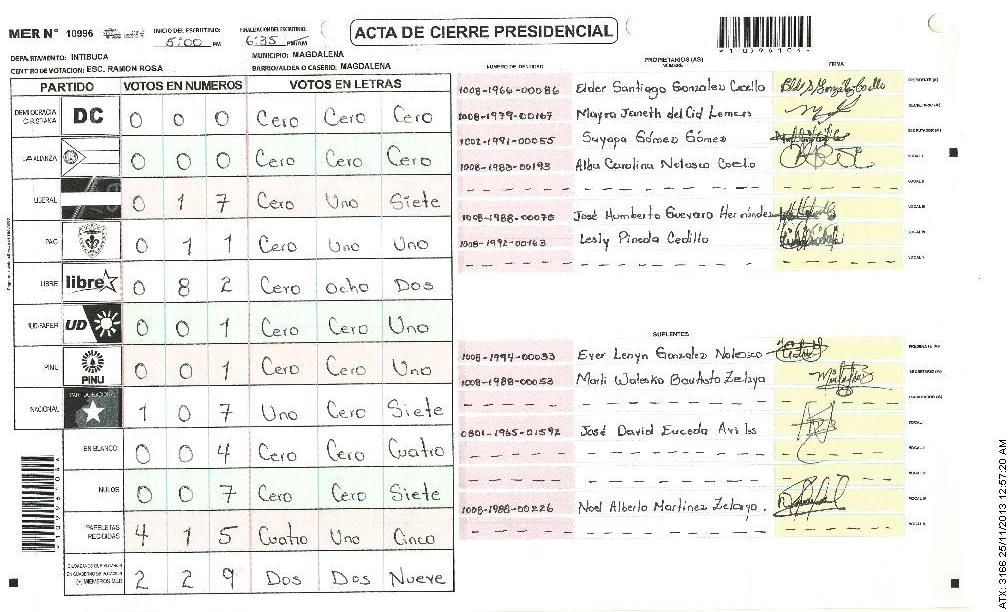 MER N° 10996 INICIO DEL ESCRUTINIO: 5:00 PM FINALIZACION DEL ESCRUTINIO: 6:35 PM/AM ACTA DE CIERRE PRESIDENCIAL
DEPARTAMENTO: INTIBUCA MUNICIPIO: MAGDALENA
CENTRO DE VOTACION: ESC. RAMON ROSA BARRIO/ALDEA O CASERIO: MAGDALENA
PARTIDO VOTOS EN NUMEROS VOTOS EN LETRAS
DEMOCRACIA CRISTIANA DC 0 0 0 Cero Cero Cero
LA ALIANZA 0 0 0 Cero Cero Cero
LIBERAL 0 1 7 Cero Uno Siete
PAC 0 1 1 Cero Uno Uno
LIBRE libre 0 8 2 Cero Ocho Dos
UD-FAPER UD 0 0 1 Cero Cero Uno
PINU PINU 0 0 1 Cero Cero Uno
NACIONAL PARTIDO NACIONAL 1 0 7 Uno Cero Siete
EN BLANCO 0 0 4 Cero Cero Cuatro
NULOS 0 0 7 Cero Cero Siete
PAPELETAS RECIBIDAS 4 1 5 Cuatro Uno Cinco
CIUDADANOS QUE VOTARON EN CUADERNO DE VOTACION (+) MIEMBROS MER 2 2 9 Dos Dos Nueve
PROPIETARIOS (AS)
NUMERO DE IDENTIDAD NOMBRE FIRMA
1008-1966-00086 Elder Santiago Gonzalez Coello PRESIDENTE (A)
1008-1979-00167 Mayra Janeth del Cid Lemus SECRETARIO (A)
1002-1991-00055 Suyapa Gómez Gómez ESCRUTADOR (A)
1008-1988-00193 Alba Carolina Nolasco Coello VOCAL I
VOCAL II
1008-1988-00076 José Humberto Guevara Hernández VOCAL III
1008-1992-00163 Lesly Pineda Cedillo VOCAL IV
VOCAL V
SUPLENTES
1008-1994-00033 Ever Lenyn Gonzalez Nolasco PRESIDENTE (A)
1008-1988-00053 Marli Waleska Bautista Zelaya SECRETARIO (A)
ESCRUTADOR (A)
0801-1965-01592 José David Euceda Aviles VOCAL I
VOCAL II
VOCAL III
1008-1988-00226 Noel Alberto Martinez Zelaya. VOCAL IV
VOCAL V
ATX: 3166 25/11/2013 12:57:20 AM